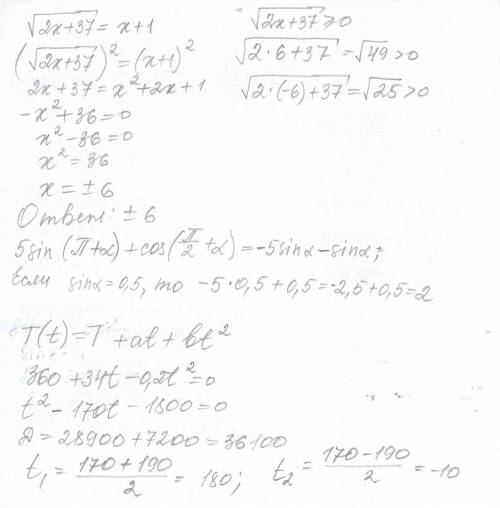 √2x+37 = x+1
(√2x+37)² = (x+1)²
2x+37 = x²+2x+1
-x²+36=0
x²-36=0
x²=36
x=±6
Ответ: ±6
√2x+37 ≥0
√2·6+37 = √49 >0
√2·(-6)+37 = √25 >0
5sin (π+α) + cos(π/2 +α) = -5sinα - sinα;
Если sinα = 0,5, то -5·0,5+0,5 = -2,5+0,5=2
T(t) = T + at + bt²
360 + 34t - 0,2t² = 0
t² - 170t - 1800 = 0
Д = 28900 + 7200 = 36100
t₁ = (170+190)/2 = 180; t₂ = (170-190)/2 = -10